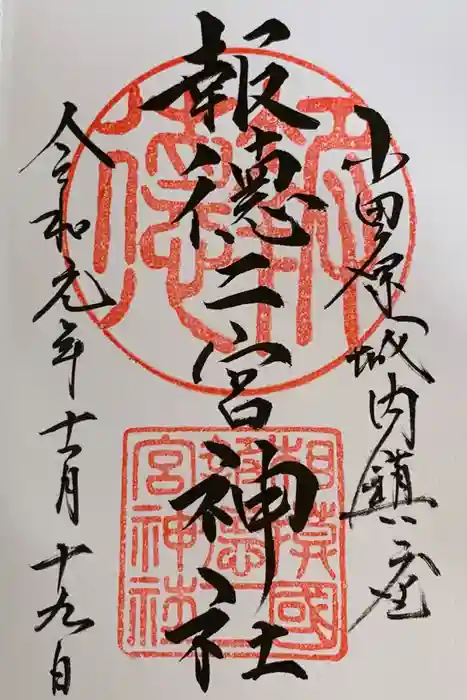 小田原城内鎮座
報徳二宮神社
令和元年十一月十九日
報徳
相模國
報徳二
宮神社